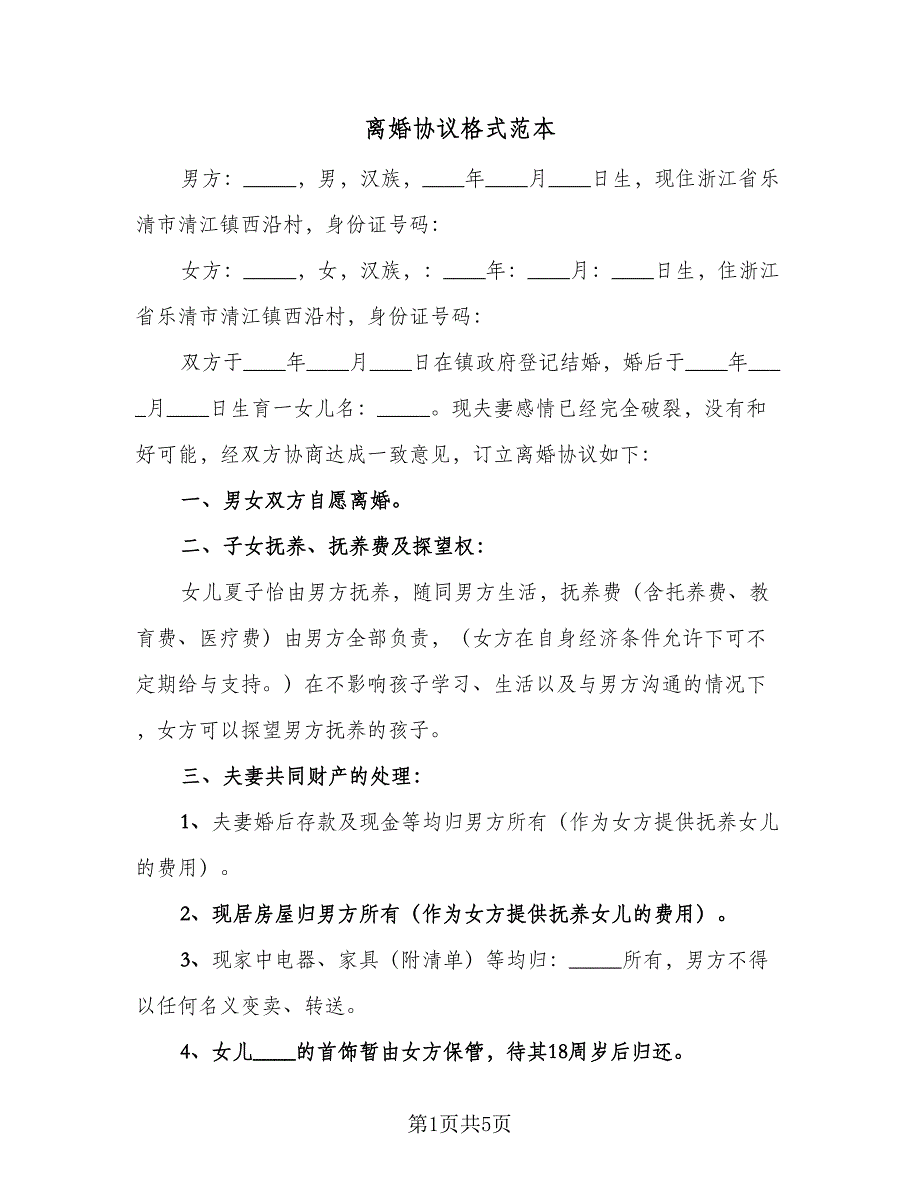 离婚协议格式范本
男方：_____，男，汉族，____年____月____日生，现住浙江省乐
清市清江镇西沿村，身份证号码：
女方：_____，女，汉族，：____年：____月：____日生，住浙江
省乐清市清江镇西沿村，身份证号码：
双方于____年____月____日在镇政府登记结婚，婚后于____年___
_月____日生育一女儿名：_____。现夫妻感情已经完全破裂，没有和
好可能，经双方协商达成一致意见，订立离婚协议如下：
一、男女双方自愿离婚。
二、子女抚养、抚养费及探望权：
女儿夏子怡由男方抚养，随同男方生活，抚养费（含托养费、教
育费、医疗费）由男方全部负责，（女方在自身经济条件允许下可不
定期给与支持。）在不影响孩子学习、生活以及与男方沟通的情况下
，女方可以探望男方抚养的孩子。
三、夫妻共同财产的处理：
1、夫妻婚后存款及现金等均归男方所有（作为女方提供抚养女儿
的费用）。
2、现居房屋归男方所有（作为女方提供抚养女儿的费用）。
3、现家中电器、家具（附清单）等均归：_____所有，男方不得
以任何名义变卖、转送。
4、女儿____的首饰暂由女方保管，待其18周岁后归还。
第1页共5页